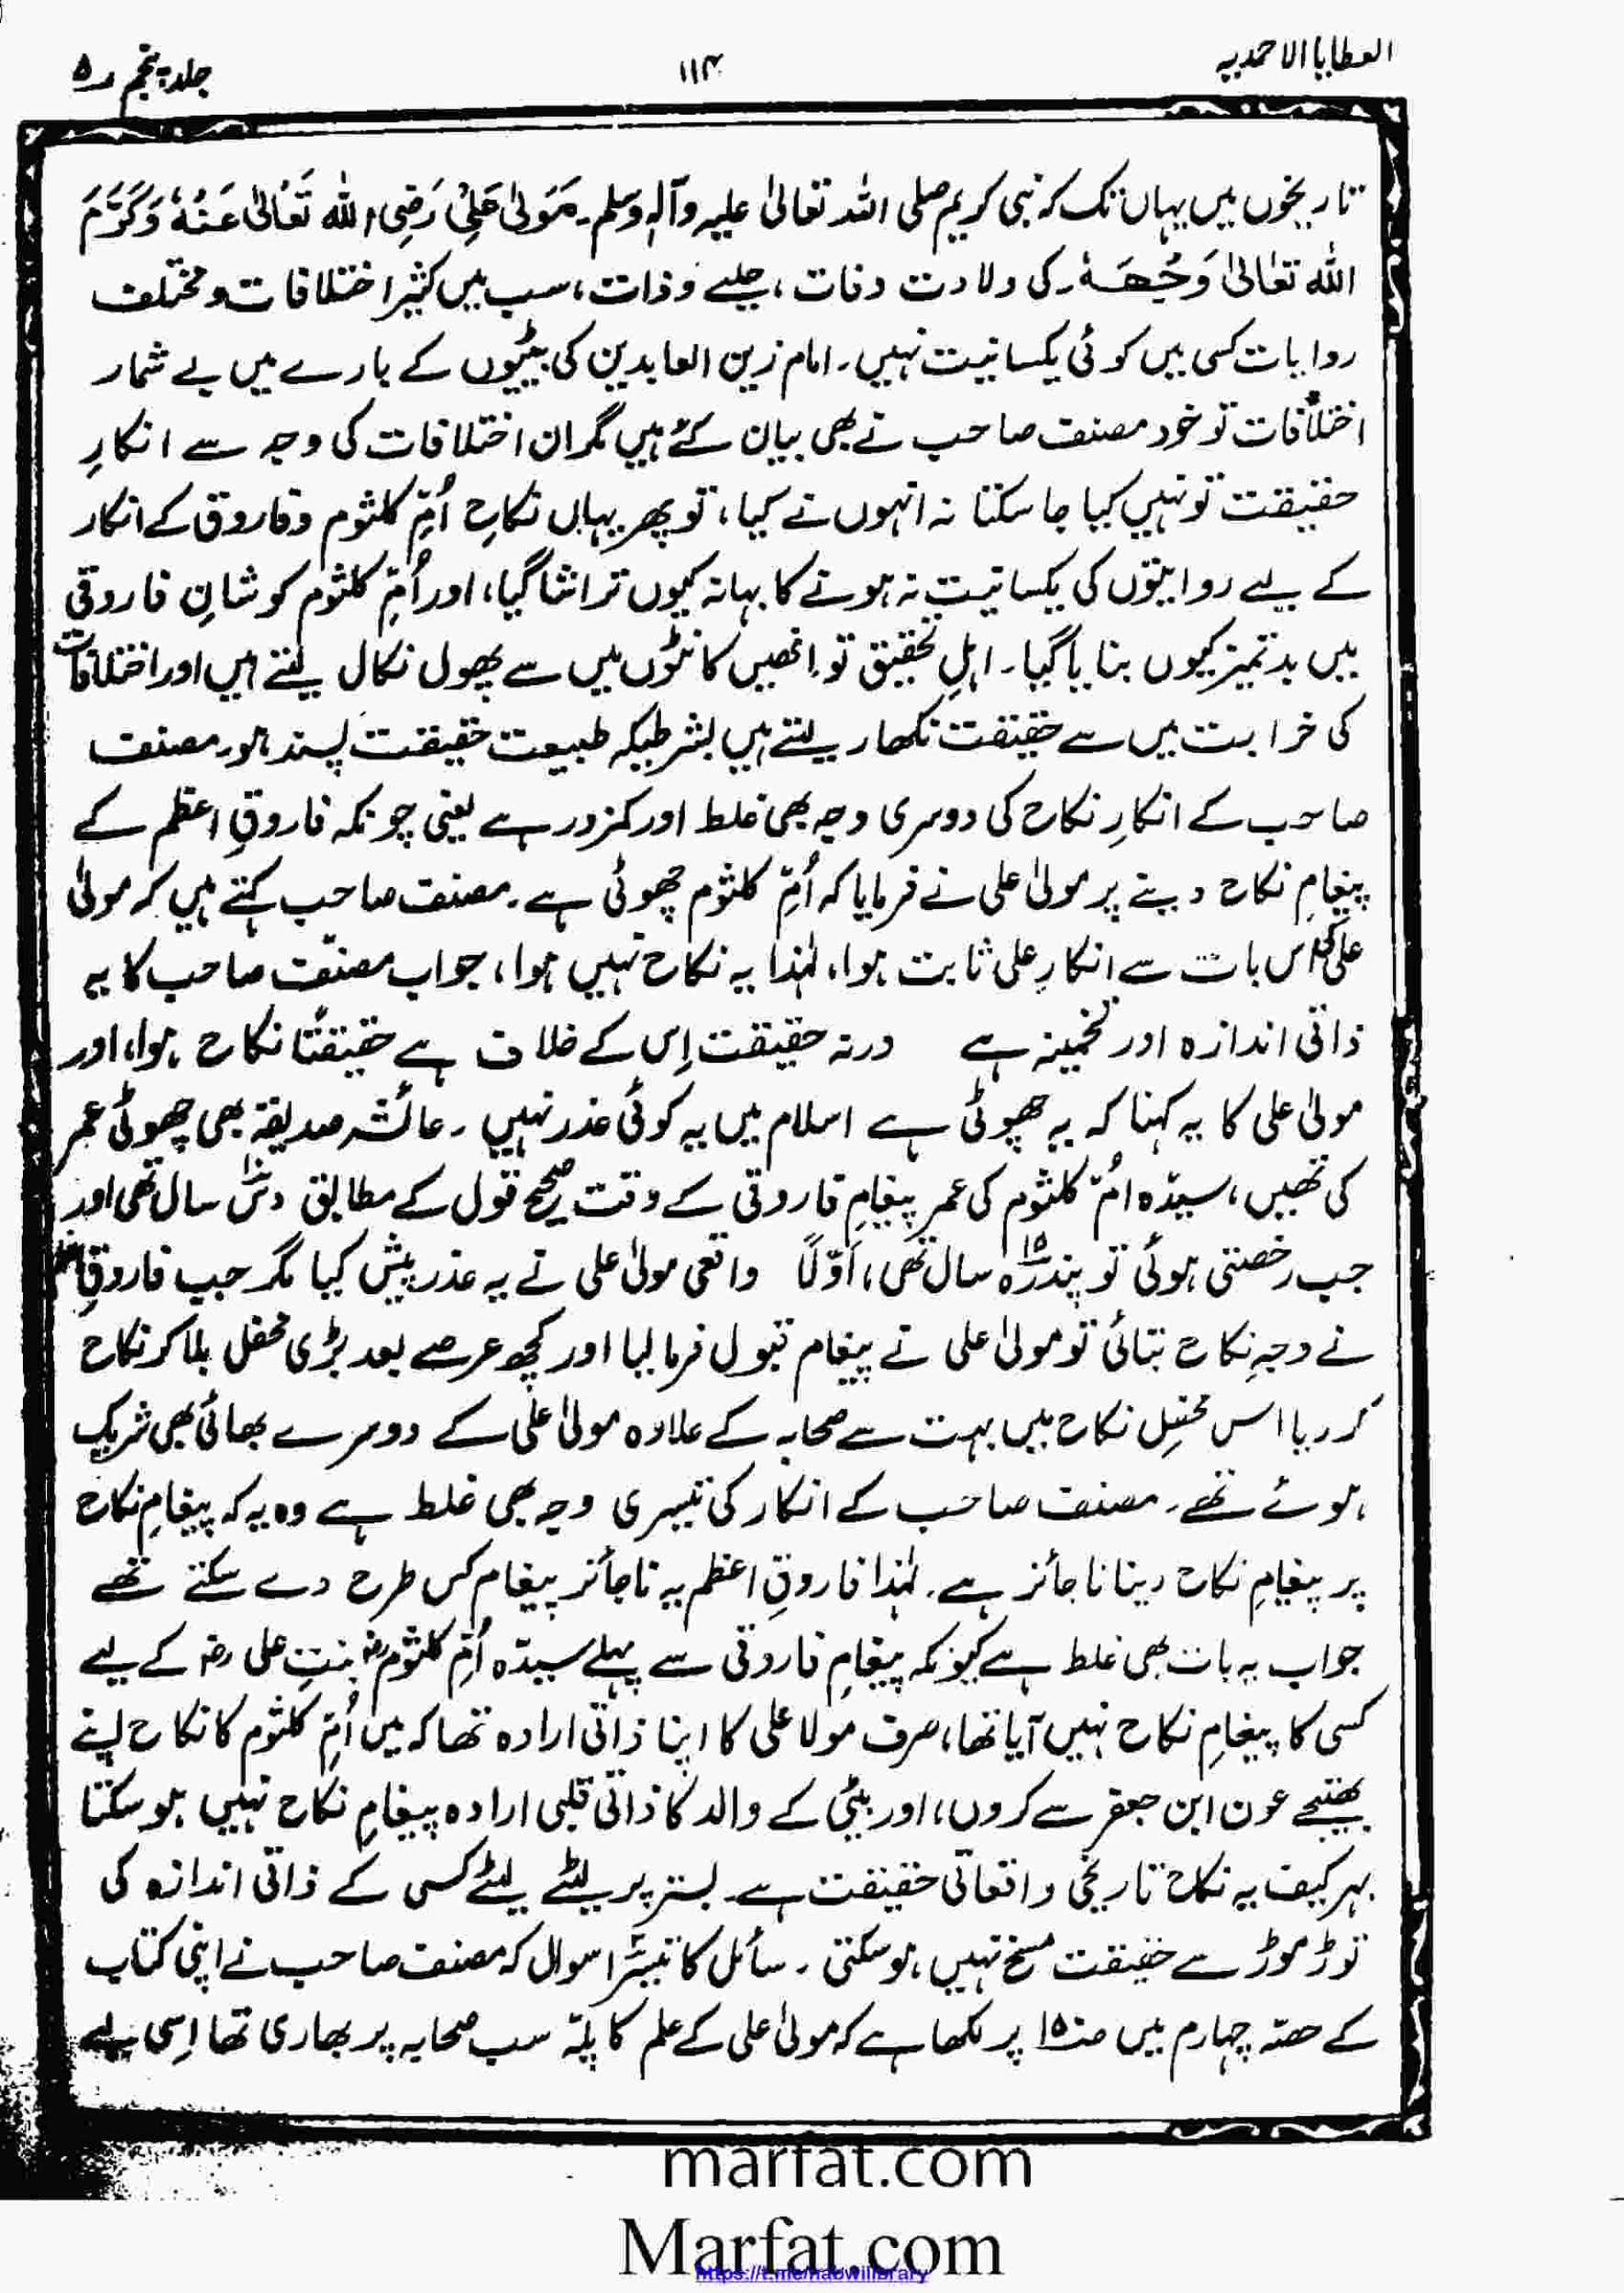 العطایا الاحمدیہ
۱۱۴
جلد پنجم ر۵
تاریخوں میں یہاں تک کہ نبی کریم صلی اللہ تعالیٰ علیہ وآلہٖ وسلم۔ مَوْلیٰ عَلِیْ رَضِی اللہ تَعَالیٰ عَنْہُ وَکَرَّمَ
اللہ تعَالیٰ وَجْہَہٗ۔ کی ولادت وفات، جلیے وذات، سب میں کثیر اختلافات و مختلف
روایات کسی میں کوئی یکسانیت نہیں۔ امام زین العابدین کی بیٹیوں کے بارے میں بے شمار
اختلافات تو خود مصنف صاحب نے بھی بیان کئے ہیں مگر ان اختلافات کی وجہ سے انکارِ
حقیقت تو نہیں کیا جا سکتا نہ انہوں نے کیا، تو پھر یہاں نکاحِ اُمِّ کلثوم وفاروق کے انکار
کے لیے روایتوں کی یکسانیت نہ ہونے کا بہانہ کیوں تراشا گیا، اور اُمِّ کلثوم کو شانِ فاروقی
میں بدتمیز کیوں بنایا گیا۔ اہلِ تحقیق تو انھیں کانٹوں میں سے پھول نکال لیتے ہیں اور اختلافات
کی خرابت میں سے حقیقت نکھار لیتے ہیں بشرطیکہ طبیعت حقیقت پسند ہو۔ مصنف
صاحب کے انکارِ نکاح کی دوسری وجہ بھی غلط اور کمزور ہے یعنی چونکہ فاروقِ اعظم کے
پیغامِ نکاح دینے پر مولیٰ علی نے فرمایا کہ اُمِّ کلثوم چھوٹی ہے۔ مصنف صاحب کہتے ہیں کہ مولیٰ
علی کی اس بات سے انکارِ علی ثابت ہوا، لہٰذا یہ نکاح نہیں ہوا، جواب مصنّف صاحب کا یہ
ذاتی اندازہ اور تخمینہ ہے ورنہ حقیقت اِس کے خلاف ہے حقیقتًا نکاح ہوا، اور
مولیٰ علی کا یہ کہنا کہ یہ چھوٹی ہے اسلام میں یہ کوئی عذر نہیں۔ عائشہ صدیقہ بھی چھوٹی عمر
کی تھیں، سیدّہ امِّ کلثوم کی عمر پیغامِ فاروقی کے وقت صحیح قول کے مطابق دسؔ۱۰ سال تھی اور
جب رخصتی ہوئی تو پندرہ۱۵ سال تھی، اوّلًا واقعی مولیٰ علی نے یہ عذر پیش کیا مگر جب فاروقِ اعظم
نے وجہِ نکاح بتائی تو مولیٰ علی نے پیغام قبول فرما لیا اور کچھ عرصے بعد بڑی محفل بلا کر نکاح
کر دیا اس محفلِ نکاح میں بہت سے صحابہ کے علاوہ مولیٰ علی کے دوسرے بھائی بھی شریک
ہوئے تھے۔ مصنف صاحب کے انکار کی تیسری وجہ بھی غلط ہے وہ یہ کہ پیغامِ نکاح
پر پیغامِ نکاح دینا ناجائز ہے۔ لہٰذا فاروقِ اعظم یہ ناجائز پیغام کس طرح دے سکتے تھے
جواب یہ بات بھی غلط ہے کیونکہ پیغامِ فاروقی سے پہلے سیدّہ اُمِّ کلثومؓ بنتِ علی رضہ کے لیے
کسی کا پیغامِ نکاح نہیں آیا تھا، صرف مولا علی کا اپنا ذاتی ارادہ تھا کہ میں اُمِّ کلثوم کا نکاح اپنے
بھتیجے عون ابن جعفر سے کروں، اور بیٹی کے والد کا ذاتی قلبی ارادہ پیغامِ نکاح نہیں ہو سکتا
بہر کیف یہ نکاح تاریخی واقعاتی حقیقت ہے۔ بستر پر لیٹے لیٹے کسی کے ذاتی اندازہ کی
توڑ موڑ سے حقیقت مسخ نہیں ہو سکتی۔ سائل کا تیسرا سوال کہ مصنف صاحب نے اپنی کتاب
کے حصّہ چہارم میں پر لکھا ہے کہ مولیٰ علی کے علم کا پلّہ سب صحابہ پر بھاری تھا اِسی لیے
marfat.com
Marfat.com
https://t.me/nabwilibrary